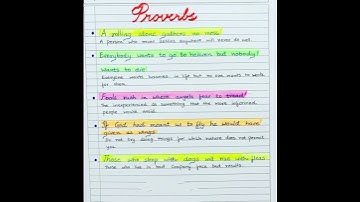 Proverbs
A rolling stone gathers no moss
A person who never settles anywhere will never do well.
Everybody wants to go to heaven but nobody
wants to die
Everyone wants rewards in life but no one wants to work
for them.
Fools rush in where angels fear to tread
The inexperienced do something that the more informed
people would avoid.
If God had meant us to fly he would have
given us wings
Do not try doing things for which nature does not permit
you.
Those who sleep with dogs will rise with fleas
Those who live in bad company face bad results.